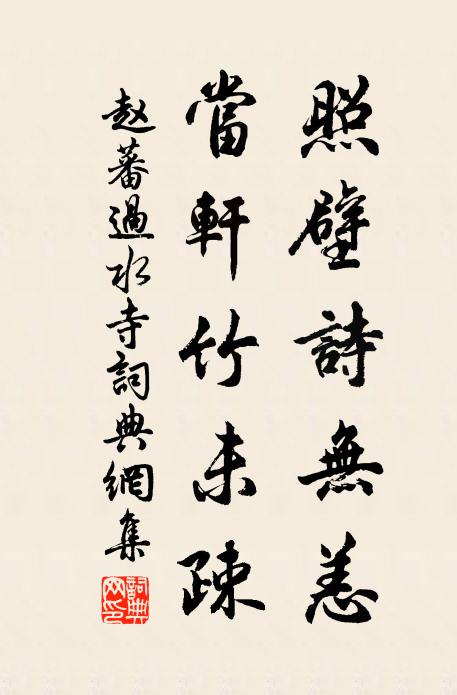 照壁詩無恙
當軒竹未疎
赵蕃過水寺詞典網集
詞典网印